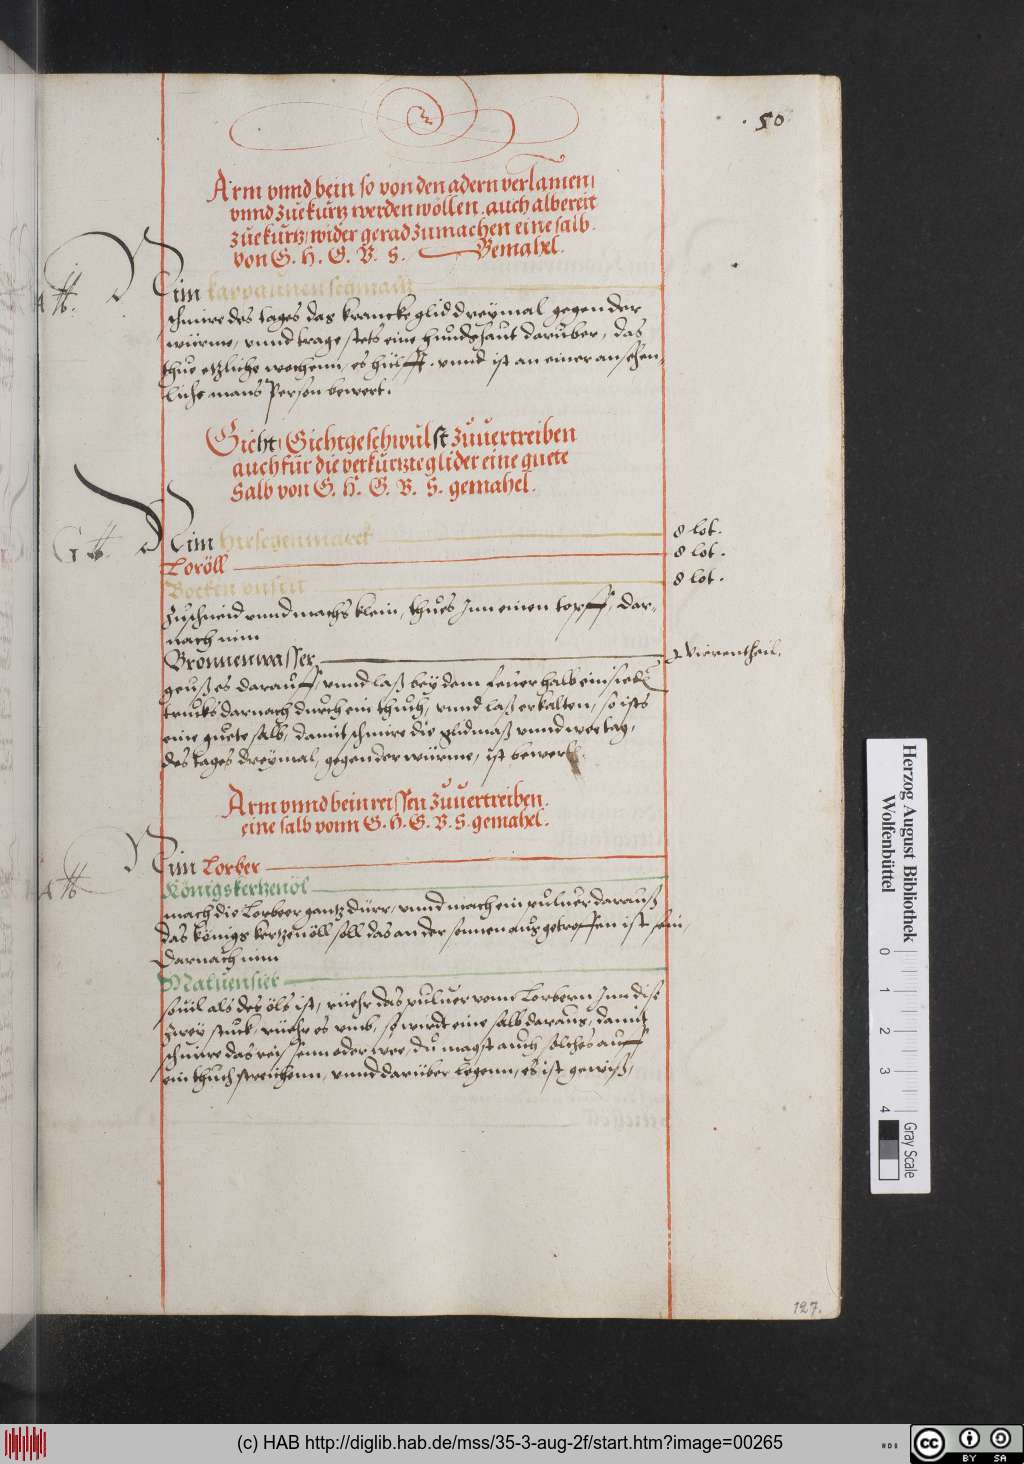 50
Arm vnnd bein so von den adern verlamen,
vnnd zuekurtz werden wöllen, auch albereit
zuekurtz, wider gerad zumachen eine salb.
von G. H. G. V. S. Gemahel.
Nim kappaunenschmaltz
schmire des tages das krancke glid dreymal gegen der
würme, vnnd trage stets eine hundshaut darüber, das
thue etzliche wochenn, es hülfft. vnnd ist an einer ansehen-
liche mans Person bewert.
Gicht, Gichtgeschwulst zuuertreiben
auch für die verkürtzte glider eine guete
Salb von G. H. G. V. S. gemahel.
Nim Hirschenmarck 8 lot.
Loröll 8 lot.
Bocken vnslit 8 lot.
Zuschneid vnnd machs klein, thues Inn einen topff, dar-
nach nim
Bronnenwasser Vierentheil.
geuß es darauff, vnnd laß bey dem feuer halb einsieden
trucks darnach durch ein thuch, vnnd laß erkalten, so ists
eine guete salb, damit schmire die glidmaß vnnd wee tag,
des tages dreymal, gegen der würme, ist bewert.
Arm vnnd bein reissen zuuertreiben.
eine salb vonn G. H. G. V. S. gemahel.
Nim Lorber
Königskertzenöl
mach die Lorbeer gantz dürr, vnnd mach ein puluer darauß
das Königs kertzenöll soll das an der sonnen ausgetroffen ist sein,
Darnach nim
souil als des öls ist, rüehr das puluer vonn Lorbern Inn dise
zwey stuck, rüehr es vmb, so wirdt eine salb daraus, damit
schmire das reissenn oder wee, du magst auch solches auff
ein thuch streichenn, vnnd darüber legenn, es ist gewiß,
127.
Herzog August Bibliothek
Wolfenbüttel
0 1 2 3 4
Gray Scale
(c) HAB http://diglib.hab.de/mss/35-3-aug-2f/start.htm?image=00265
cc BY SA